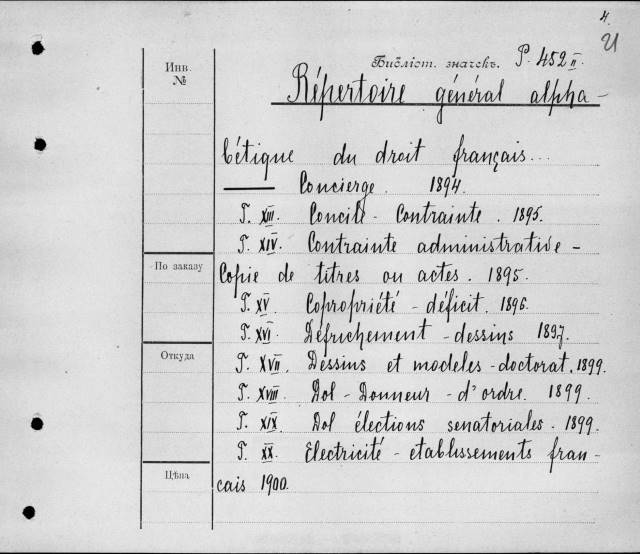 4.
Инв.
№
Библіот. значекъ. P. 452 II.
Répertoire général alpha-
bétique du droit français...
—— Concierge. 1894.
T. XIII. Concile - Contrainte. 1895.
T. XIV. Contrainte administrative -
По заказу
Copie de titres ou actes. 1895.
T. XV Copropriété - déficit. 1896.
T. XVI Défrichement - dessins 1897.
Откуда
T. XVII. Dessins et modeles - doctorat. 1899.
T. XVIII. Dol - Donneur - d'ordre. 1899.
T. XIX. Dol élections senatoriales. 1899.
T. XX. Électricité - etablissements fran-
Цѣна
cais 1900.